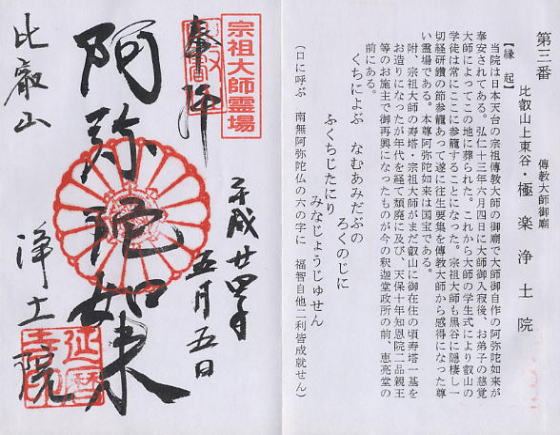 第三番
傳教大師御廟
比叡山上東谷・極楽浄土院
【縁起】
当院は日本天台の宗祖傳教大師の御廟で大師御自作の阿弥陀如来が
奉安されてある。弘仁十三年六月四日に大師御入寂後、お弟子の慈覚
大師によってこの地に葬られた。これから大師の学生式により叡山の
学徒は常にここに参籠することになった。宗祖大師も黒谷に隠棲し一
切経研鑽の節参籠あって遂に往生要集を傳教大師から感得になった尊
い霊場である。本尊阿弥陀如来は国宝である。
附、宗祖大師の寿塔・宗祖大師がまだ叡山に御在住の頃寿塔一基を
お造りになったが年代を経て頽廃に及び、天保十年知恩院二品親王
等のお施主で御再興になったものが今の釈迦堂政所の前、恵亮堂の
前にある。
くちによぶ なむあみだぶの
ろくのじに
ふくちじたにり
みなじょうじゅせん
(口に呼ぶ 南無阿弥陀仏の六の字に 福智自他二利皆成就せん)
宗祖大師霊場
奉拝
平成廿四年
五月五日
阿弥陀如来
比叡山
浄土院
延暦